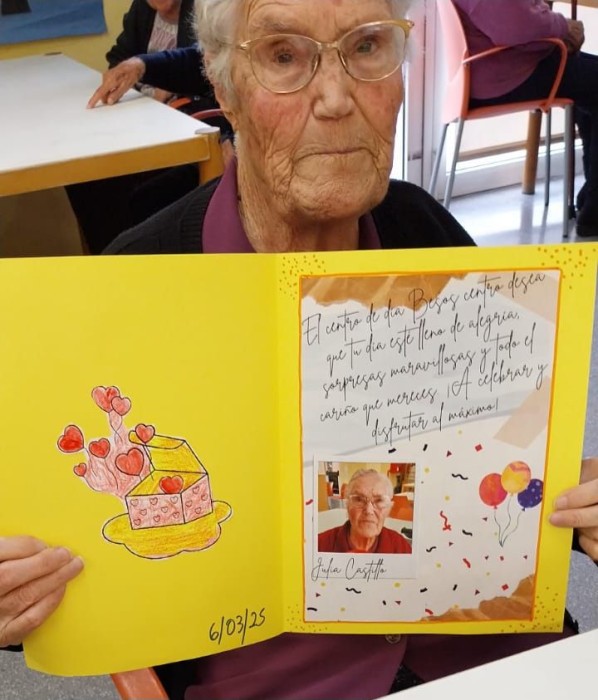 El centro de día Besos centro desea
que tu día esté lleno de alegría,
sorpresas maravillosas y todo el
cariño que mereces ¡A celebrar y
disfrutar al máximo!
Julia Castillo
6/03/25